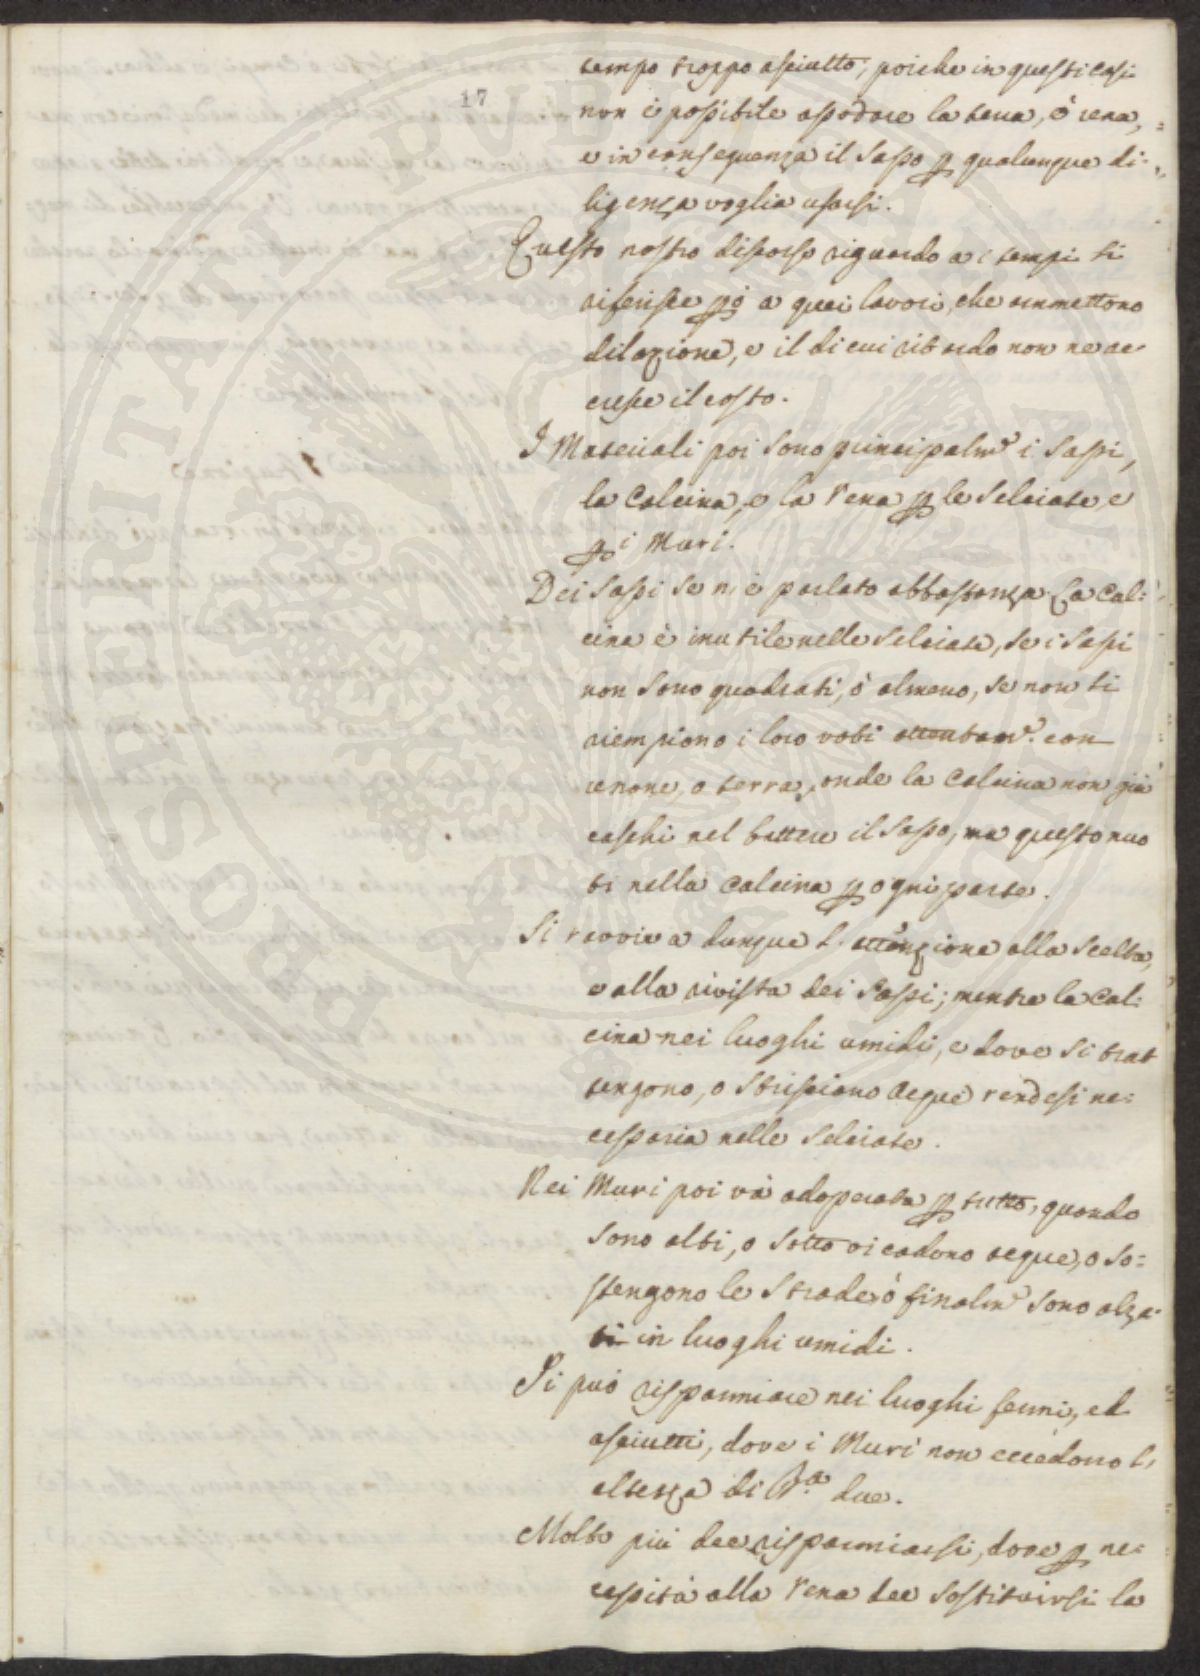 17
tempo troppo asciutto, poiche in questi casi
non è possibile assodare la terra, ò rena,
e in conseguenza il Sasso p qualunque di-
ligenza voglia usarsi.
Questo nostro discorso riguardo a i tempi si
riferisce pò a quei lavori, che ammettono
dilazione, e il di cui ritardo non ne ac-
cresce il costo.
I Materiali poi sono principalm.e i Sassi,
la Calcina, e la rena p le Selciate, e
p i Muri.
Dei Sassi se n'è parlato abbastanza. La Cal-
cina è inutile nelle Selciate, se i Sassi
non sono quadrati, ò almeno, se non si
riempiono i loro voti attentam.e con
renone, o terra, onde la Calcina non giù
caschi nel battere il Sasso, ma questo nuo
ti nella Calcina p ogni parte.
Si ravviva dunque l'attenzione alla scelta,
e alla rivista dei Sassi; mentre la Cal:
cina nei luoghi umidi, e dove si trat
tengono, o strisciano acque rendesi ne:
cessaria nelle Selciate.
Nei Muri poi và adoperata p tutto, quando
sono alti, o sotto vi cadono acque, o so=
stengono le Strade, ò finalm.e sono alza-
ti in luoghi umidi.
Si può risparmiare nei luoghi fermi, ed
asciutti, dove i Muri non eccedono l'
altezza di B.a due.
Molto più dee risparmiarsi, dove p ne:
cessità alla rena dee sostituirsi la
PROSPERITATI PVBLICAE AVGENDAE